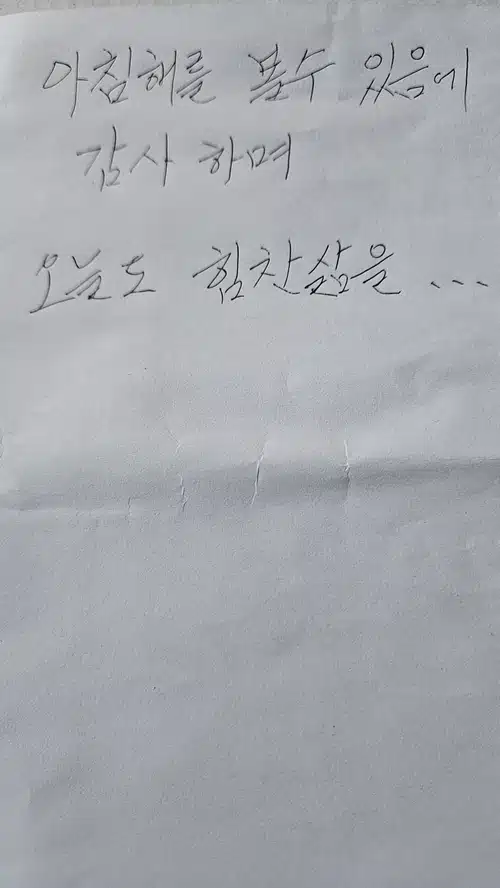 아침해를 볼수 있음에
감사 하며
오늘도 힘찬삶을 ...